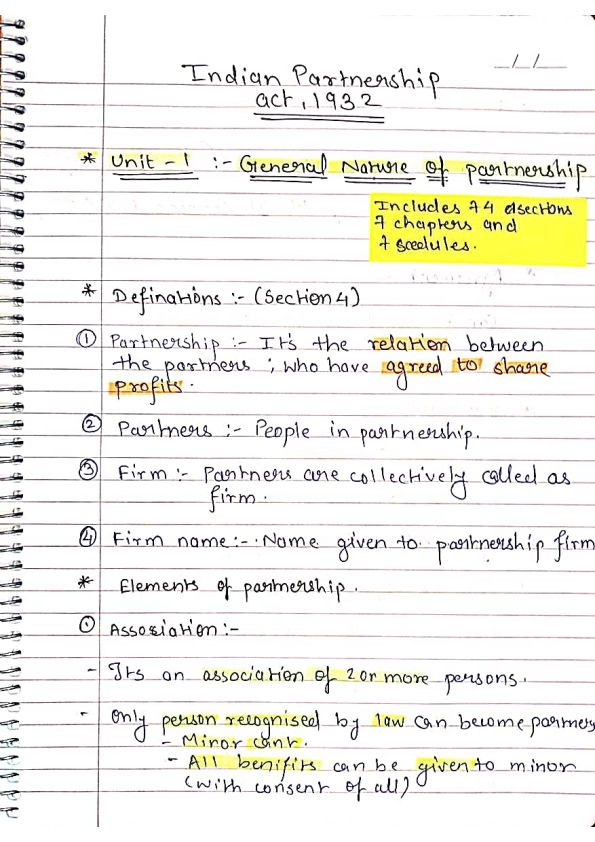 _/_/__
Indian Partnership
act, 1932
* Unit - 1 :- General Nature of partnership
Includes 74 sections
7 chapters and
7 scedules.
* Definations :- (Section 4)
① Partnership :- It's the relation between
the partners ; who have agreed to share
profits.
② Partners :- People in partnership.
③ Firm :- Partners are collectively called as
firm.
④ Firm name :- Name given to partnership firm
* Elements of partnership.
① Association :-
- Its an association of 2 or more persons.
- Only person recognised by law can become partners
- Minor can't.
- All benifits can be given to minor
(with consent of all)